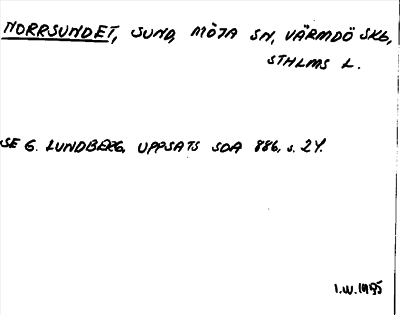 NORRSUNDET, SUND, MÖJA SN, VÄRMDÖ SKG,
STHLMS L.
SE G. LUNDBERG, UPPSATS SOA 886, s. 24.
I.W. 1995